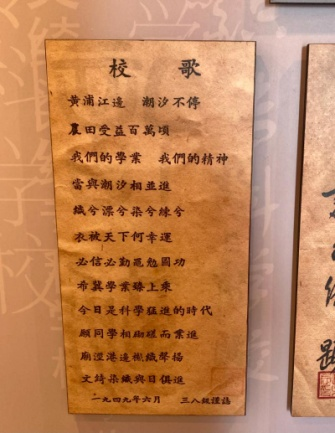 校 歌
黃浦江邊 潮汐不停
農田受益百萬頃
我們的學業 我們的精神
當與潮汐相並進
織兮漂兮染兮絲兮
衣被天下何幸運
必信必勤黽勉圖功
希冀學業臻上乘
今日是科學猛進的時代
願同學相磋而業進
港邊織聲揚
文綺染織與日俱進
一九四九年六月 三八級謹誌